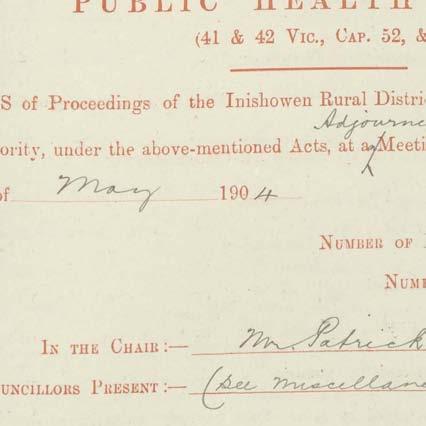 PUBLIC HEALTH
(41 & 42 Vic., Cap. 52, &
S of Proceedings of the Inishowen Rural Distri
Adjourne
ority, under the above-mentioned Acts, at a Meeti
of May 1904
Number of
Num
In the Chair:— Mr. Patrick
uncillors Present:— (See Miscellane